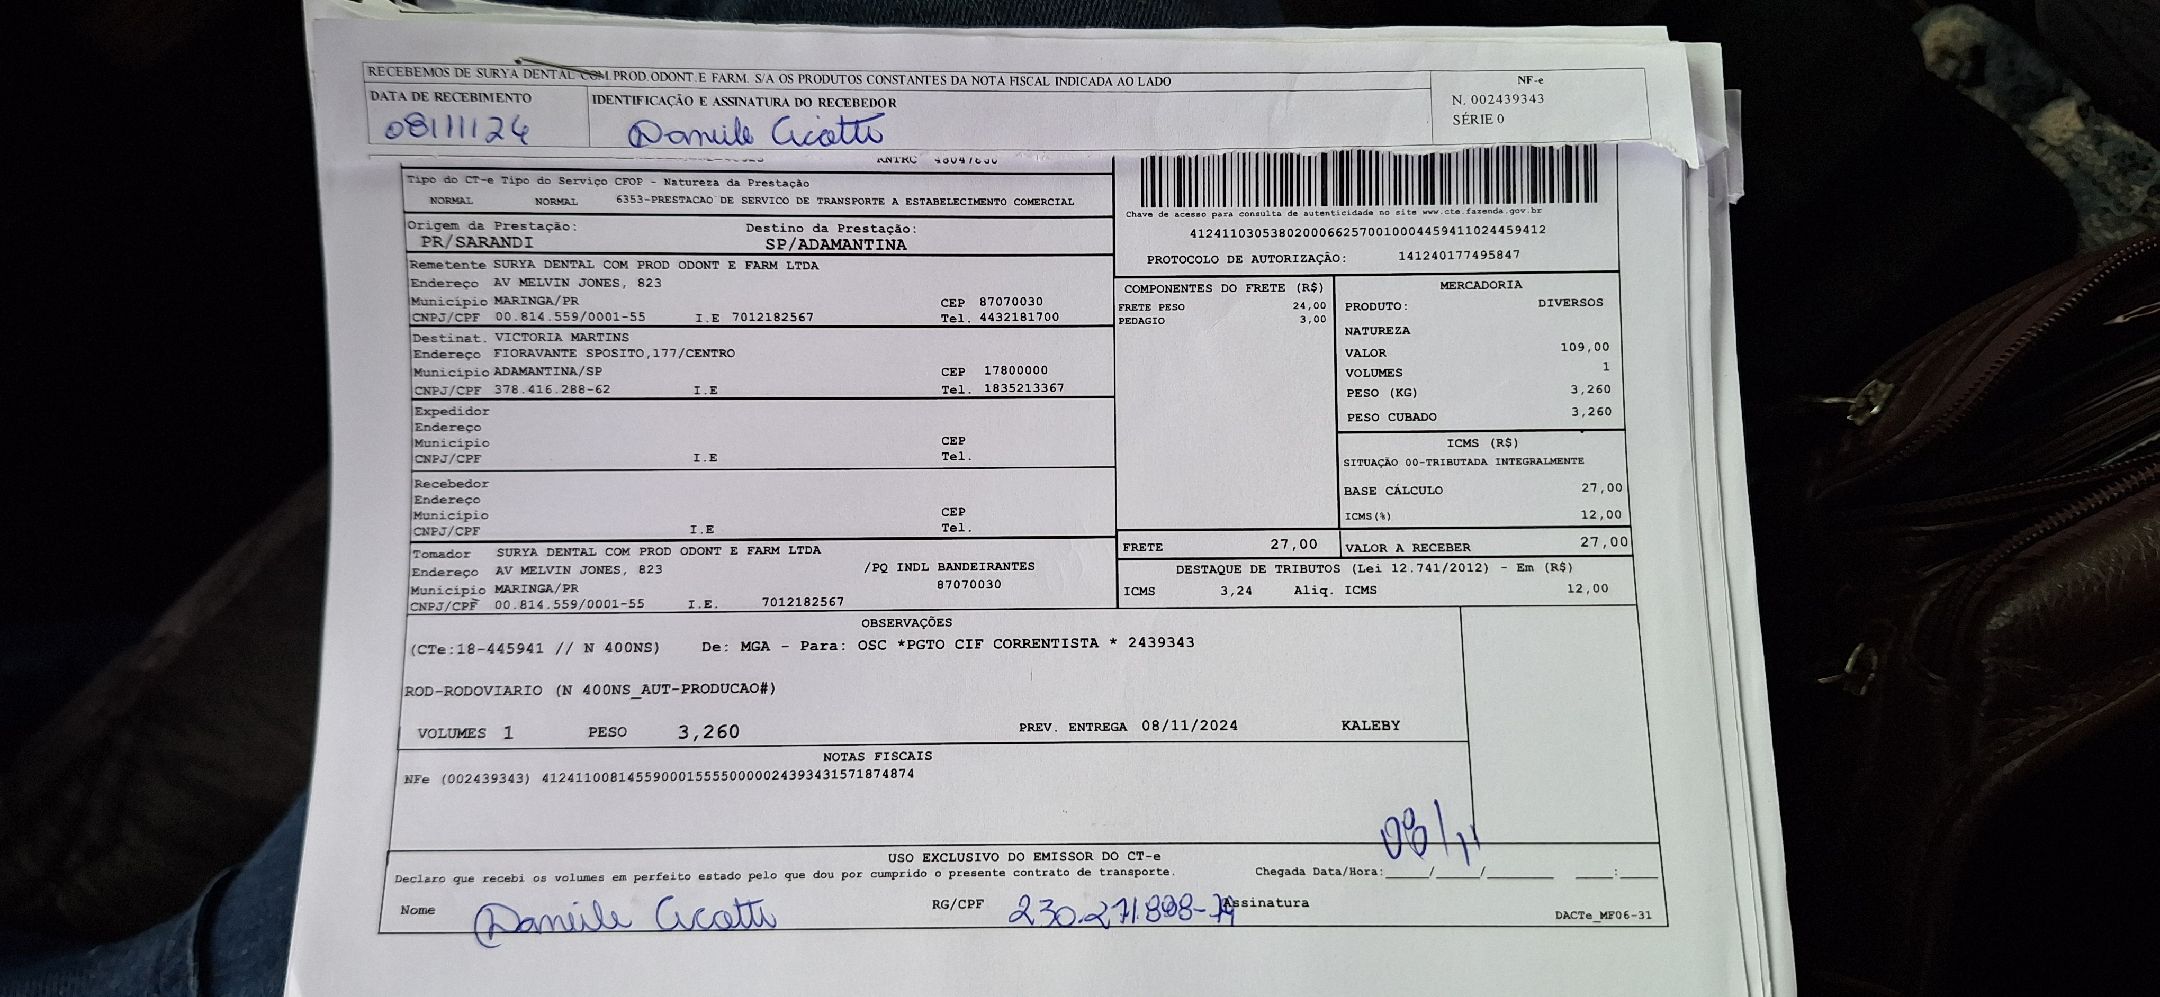 RECEBEMOS DE SURYA DENTAL COM.PROD.ODONT.E FARM. S/A OS PRODUTOS CONSTANTES DA NOTA FISCAL INDICADA AO LADO
DATA DE RECEBIMENTO
08/11/24
IDENTIFICAÇÃO E ASSINATURA DO RECEBEDOR
Daniile Cicotti
NF-e
N. 002439343
SÉRIE 0
RNTRC
Tipo do CT-e Tipo do Serviço CFOP - Natureza da Prestação
NORMAL NORMAL 6353-PRESTACAO DE SERVICO DE TRANSPORTE A ESTABELECIMENTO COMERCIAL
Origem da Prestação: Destino da Prestação:
PR/SARANDI SP/ADAMANTINA
Chave de acesso para consulta de autenticidade no site www.cte.fazenda.gov.br
41241103053802000662570010004459411024459412
PROTOCOLO DE AUTORIZAÇÃO: 141240177495847
Remetente SURYA DENTAL COM PROD ODONT E FARM LTDA
Endereço AV MELVIN JONES, 823
Município MARINGA/PR CEP 87070030
CNPJ/CPF 00.814.559/0001-55 I.E 7012182567 Tel. 4432181700
Destinat. VICTORIA MARTINS
Endereço FIORAVANTE SPOSITO,177/CENTRO
Município ADAMANTINA/SP CEP 17800000
CNPJ/CPF 378.416.288-62 I.E Tel. 1835213367
Expedidor
Endereço
Município CEP
CNPJ/CPF I.E Tel.
Recebedor
Endereço
Município CEP
CNPJ/CPF I.E Tel.
Tomador SURYA DENTAL COM PROD ODONT E FARM LTDA
Endereço AV MELVIN JONES, 823 /PQ INDL BANDEIRANTES
Município MARINGA/PR 87070030
CNPJ/CPF 00.814.559/0001-55 I.E. 7012182567
COMPONENTES DO FRETE (R$)
FRETE PESO 24,00
PEDAGIO 3,00
MERCADORIA
PRODUTO: DIVERSOS
NATUREZA
VALOR 109,00
VOLUMES 1
PESO (KG) 3,260
PESO CUBADO 3,260
ICMS (R$)
SITUAÇÃO 00-TRIBUTADA INTEGRALMENTE
BASE CÁLCULO 27,00
ICMS(%) 12,00
FRETE 27,00 VALOR A RECEBER 27,00
DESTAQUE DE TRIBUTOS (Lei 12.741/2012) - Em (R$)
ICMS 3,24 Aliq. ICMS 12,00
OBSERVAÇÕES
(CTe:18-445941 // N 400NS) De: MGA - Para: OSC *PGTO CIF CORRENTISTA * 2439343
ROD-RODOVIARIO (N 400NS_AUT-PRODUCAO#)
VOLUMES 1 PESO 3,260 PREV. ENTREGA 08/11/2024 KALEBY
NOTAS FISCAIS
NFe (002439343) 41241100814559000155550000024393431571874874
USO EXCLUSIVO DO EMISSOR DO CT-e
08/11
Declaro que recebi os volumes em perfeito estado pelo que dou por cumprido o presente contrato de transporte. Chegada Data/Hora:____/____/_______ ____:____
Nome Daniile Cicotti RG/CPF 230.271.898-79 Assinatura
DACTe_MF06-31